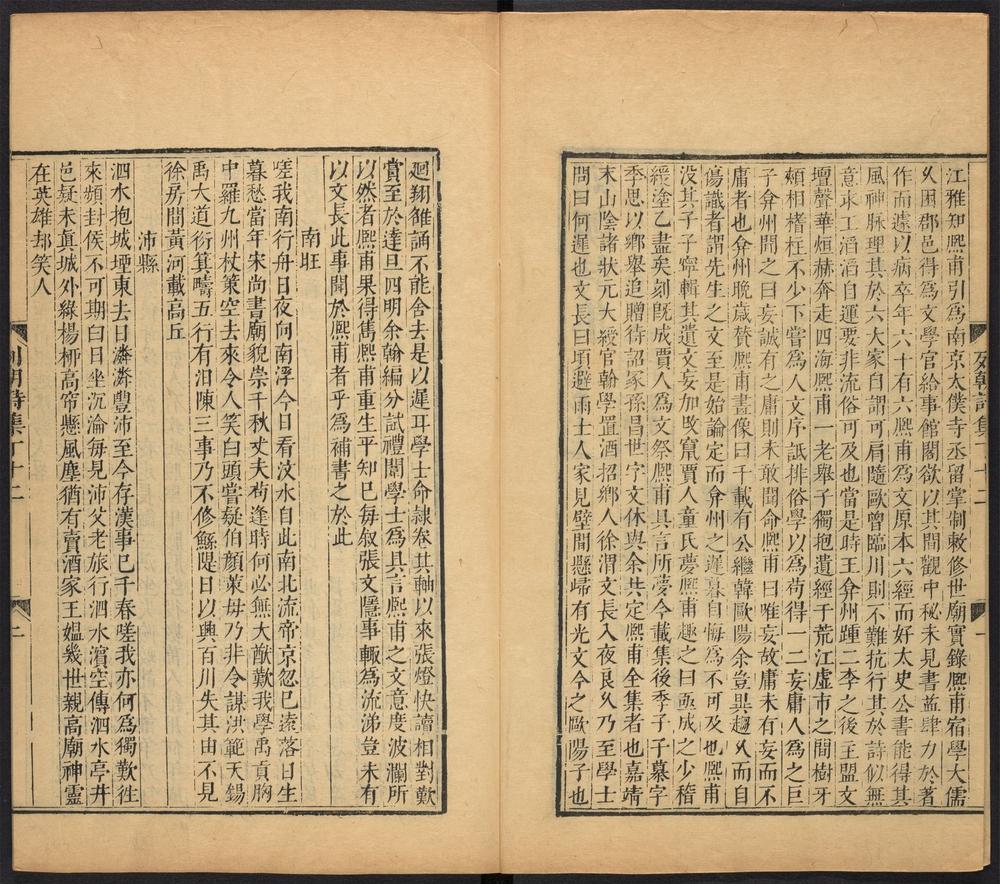 江雅知熙甫引為南京太僕寺丞留掌制敕修世廟實錄熙甫宿學大儒
久困郡邑得為文學官給事館閣欲以其間觀中秘未見書益肆力於著
作而遽以病卒年六十有六熙甫為文原本六經而好太史公書能得其
風神脉理其於六大家自謂可肩隨歐曾臨川則不難抗行其於詩似無
意求工滔滔自運要非流俗可及也當是時王弇州踵二李之後主盟文
壇聲華烜赫奔走四海熙甫一老舉子獨抱遺經于荒江虛市之間樹牙
頰相榰柱不少下嘗為人文序詆排俗學以為苟得一二妄庸人為之巨
子弇州聞之曰妄誠有之庸則未敢聞命熙甫曰唯妄故庸未有妄而不
庸者也弇州晚歲贊熙甫畫像曰千載有公繼韓歐陽余豈異趨久而自
傷識者謂先生之文至是始論定而弇州之遲暮自悔為不可及也熙甫
没其子子寧輯其遺文妄加改竄賈人童氏夢熙甫趣之曰亟成之少稽
緩塗乙盡矣刻既成賈人為文祭熙甫具言所夢今載集後季子子慕字
季思以鄉舉追贈待詔冢孫昌世字文休與余共定熙甫全集者也嘉靖
末山陰諸狀元大綬官翰學置酒招鄉人徐渭文長入夜良久乃至學士
問曰何遲也文長曰頃避雨士人家見壁間懸歸有光文今之歐陽子也
列朝詩集 丁十二
一
廻翔雒誦不能舍去是以遲耳學士命隸卷其軸以來張燈快讀相對歎
賞至於達旦四明余翰編分試禮闈學士為具言熙甫之文意度波瀾所
以然者熙甫果得雋熙甫重生平知己每叙張文隱事輒為流涕豈未有
以文長此事聞於熙甫者乎為補書之於此
南旺
嗟我南行舟日夜向南浮今日看汶水自此南北流帝京忽已遠落日生
暮愁當年宋尚書廟貌崇千秋丈夫苟逢時何必無大猷歎我學禹貢胸
中羅九州杖策空去來令人笑白頭嘗疑伯顏策毋乃非令謀洪範天錫
禹大道衍箕疇五行有汨陳三事乃不修鯀隄日以興百川失其由不見
徐房間黃河載高丘
沛縣
泗水抱城堙東去日潾潾豐沛至今存漢事已千春嗟我亦何為獨歎往
來頻封侯不可期白日坐沉淪每見沛父老旅行泗水濱空傳泗水亭井
邑疑未真城外綠楊栁高帘懸風塵猶有賣酒家王媼幾世親高廟神靈
在英雄却笑人
列朝詩集丁十二
二